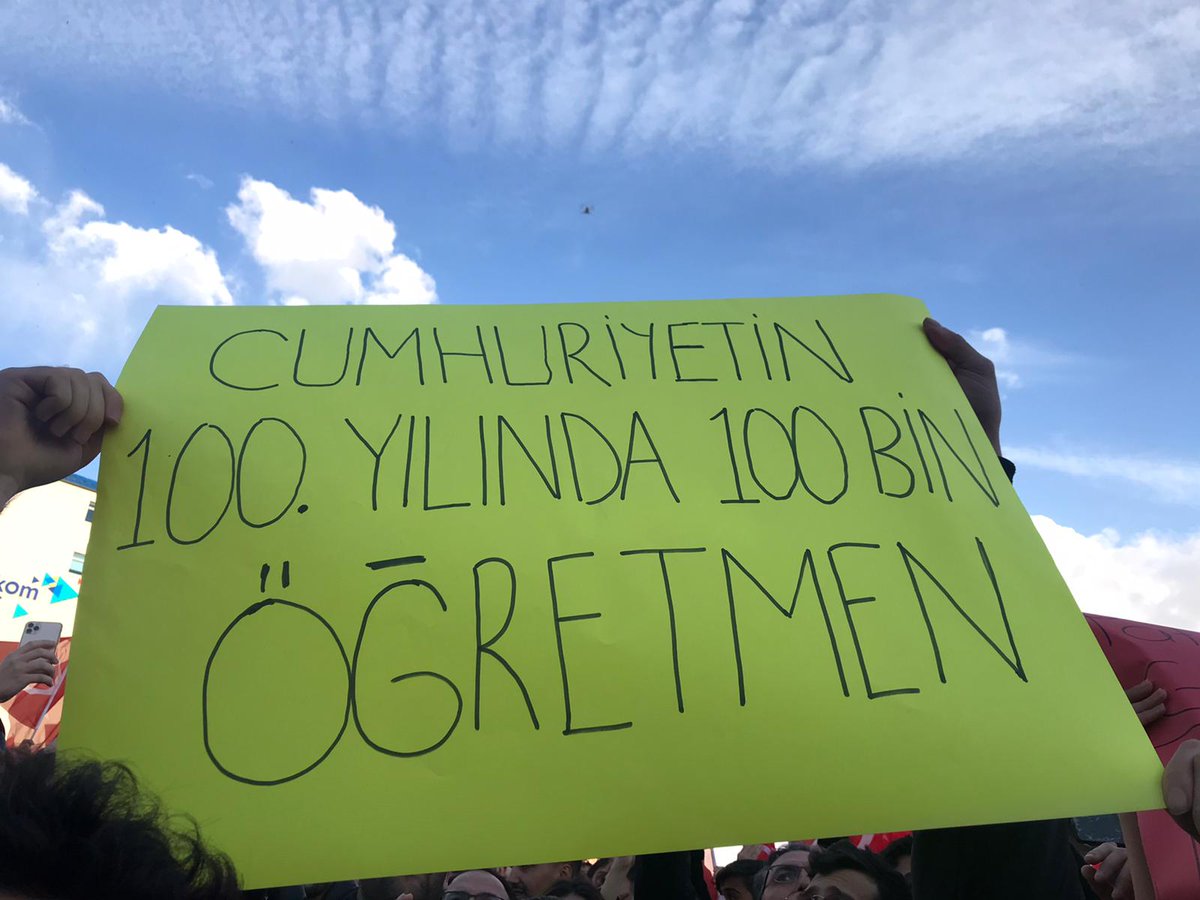 CUMHURİYETİN
100. YILINDA 100 BİN
ÖĞRETMEN
kom